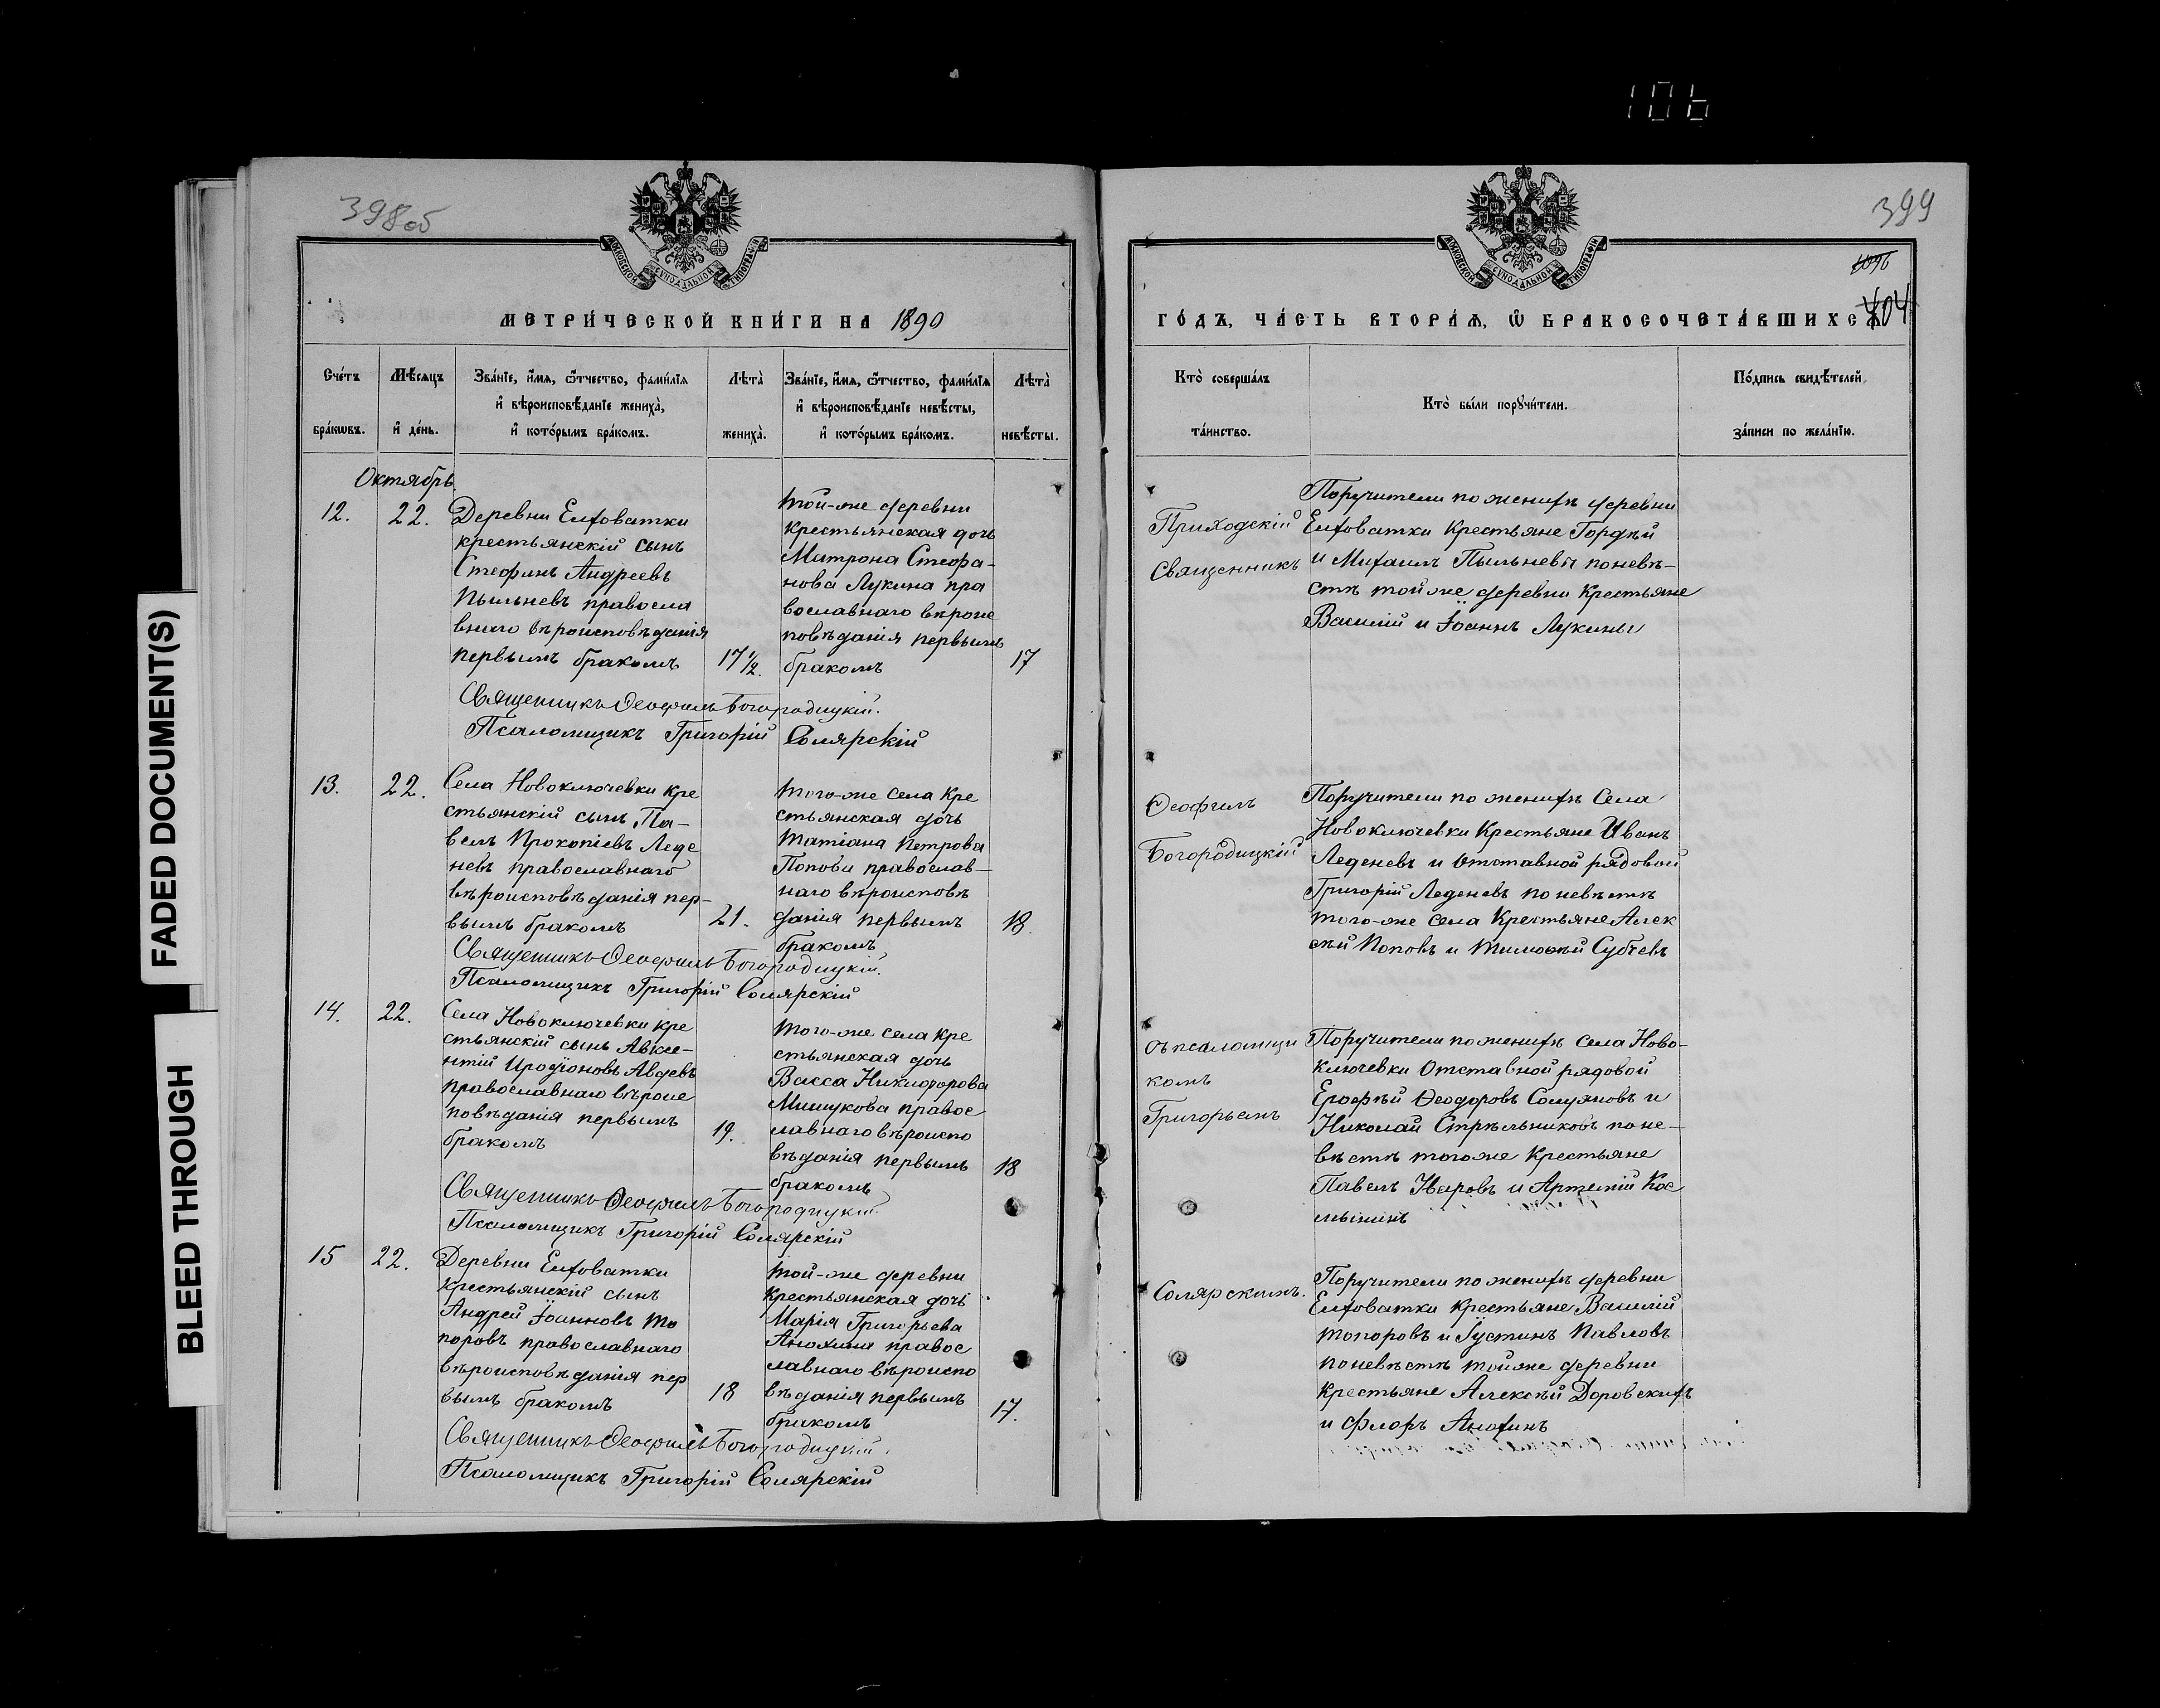 106
FADED DOCUMENT(S)
BLEED THROUGH
398об
МЕТРИ́ЧЕСКОЙ КНИ́ГИ НА 1890
Сче́тъ бра́кѡвъ.
Мѣ́сяцъ и҆ де́нь.
Зва́нїе, и҆́мя, ѻ҆́тчество, фами́лїя
и҆ вѣроисповѣ́данїе жениха̀,
и҆ кото́рымъ бра́комъ.
Лѣта̀ жениха̀.
Зва́нїе, и҆́мя, ѻ҆́тчество, фами́лїя
и҆ вѣроисповѣ́данїе невѣ́сты,
и҆ кото́рымъ бра́комъ.
Лѣта̀ невѣ́сты.
Октябрь
12.
22.
Деревни Елховатки
крестьянскій сынъ
Стефанъ Андреевъ
Пыльневъ правосла
внаго вѣроисповѣданія
первымъ бракомъ
17 1/2.
той-же деревни
крестьянская дочь
Матрона Стефа-
нова Лукина пра
вославнаго вѣроис
повѣданія первымъ
бракомъ
17
Священникъ Ѳеофилъ Богородицкій.
Псаломщикъ Григорій Солярскій
13.
22.
Села Новоключевки кре
стьянскій сынъ Па-
велъ Прокопіевъ Леде
невъ православнаго
вѣроисповѣданія пер-
вымъ бракомъ
21.
того-же села кре
стьянская дочь
Татіана Петрова
Попова православ-
наго вѣроисповѣ
данія первымъ
бракомъ
18.
Священникъ Ѳеофилъ Богородицкій.
Псаломщикъ Григорій Солярскій
14.
22.
Села Новоключевки кре
стьянскій сынъ Авксе-
нтій Иродіоновъ Авдевъ
православнаго вѣроис
повѣданія первымъ
бракомъ
19.
того-же села кре
стьянская дочь
Васса Никифорова
Мишукова правос
лавнаго вѣроиспо
вѣданія первымъ
бракомъ
18
Священникъ Ѳеофилъ Богородицкій.
Псаломщикъ Григорій Солярскій
15
22.
Деревни Елховатки
крестьянскій сынъ
Андрей Іоанновъ То
поровъ православнаго
вѣроисповѣданія пер
вымъ бракомъ
18
той-же деревни
крестьянская дочь
Марія Григорьева
Анохина правос
лавнаго вѣроиспо
вѣданія первымъ
бракомъ
17.
Священникъ Ѳеофилъ Богородицкій.
Псаломщикъ Григорій Солярскій
399
1096
404
ГО́ДЪ, ЧА́СТЬ ВТОРА́Я, Ѡ҆ БРАКОСОЧЕТА́ВШИХСЯ
Кто̀ соверша́лъ та́инство.
Кто̀ бы́ли порꙋчи́тели.
По́дпись свидѣ́телей
за́писи по жела́нїю.
Приходскій
Священникъ
Поручители по женихѣ деревни
Елховатки Крестьяне Гордѣй
и Михаилъ Пыльневы по невѣ-
стѣ той же деревни Крестьяне
Василій и Іоаннъ Лукины
Ѳеофилъ
Богородицкій
Поручители по женихѣ Села
Новоключевки Крестьяне Иванъ
Леденевъ и Отставной рядовой
Григорій Леденевъ по невѣстѣ
того-же села Крестьяне Алек
сѣй Поповъ и Тимоѳей Субчевъ
съ псаломщи
комъ
Григорьемъ
Поручители по женихѣ села Ново-
ключевки Отставной рядовой
Ерофѣй Ѳеодоровъ Солуяновъ и
Николай Стрѣльниковъ по не-
вѣстѣ того же Крестьяне
Павелъ Уваровъ и Артемій Кос
мынинъ
Солярскимъ.
Поручители по женихѣ деревни
Елховатки Крестьяне Василій
Топоровъ и Іустинъ Павловъ
по невѣстѣ той же деревни
Крестьяне Алексѣй Доровскихъ
и Флоръ Анохинъ